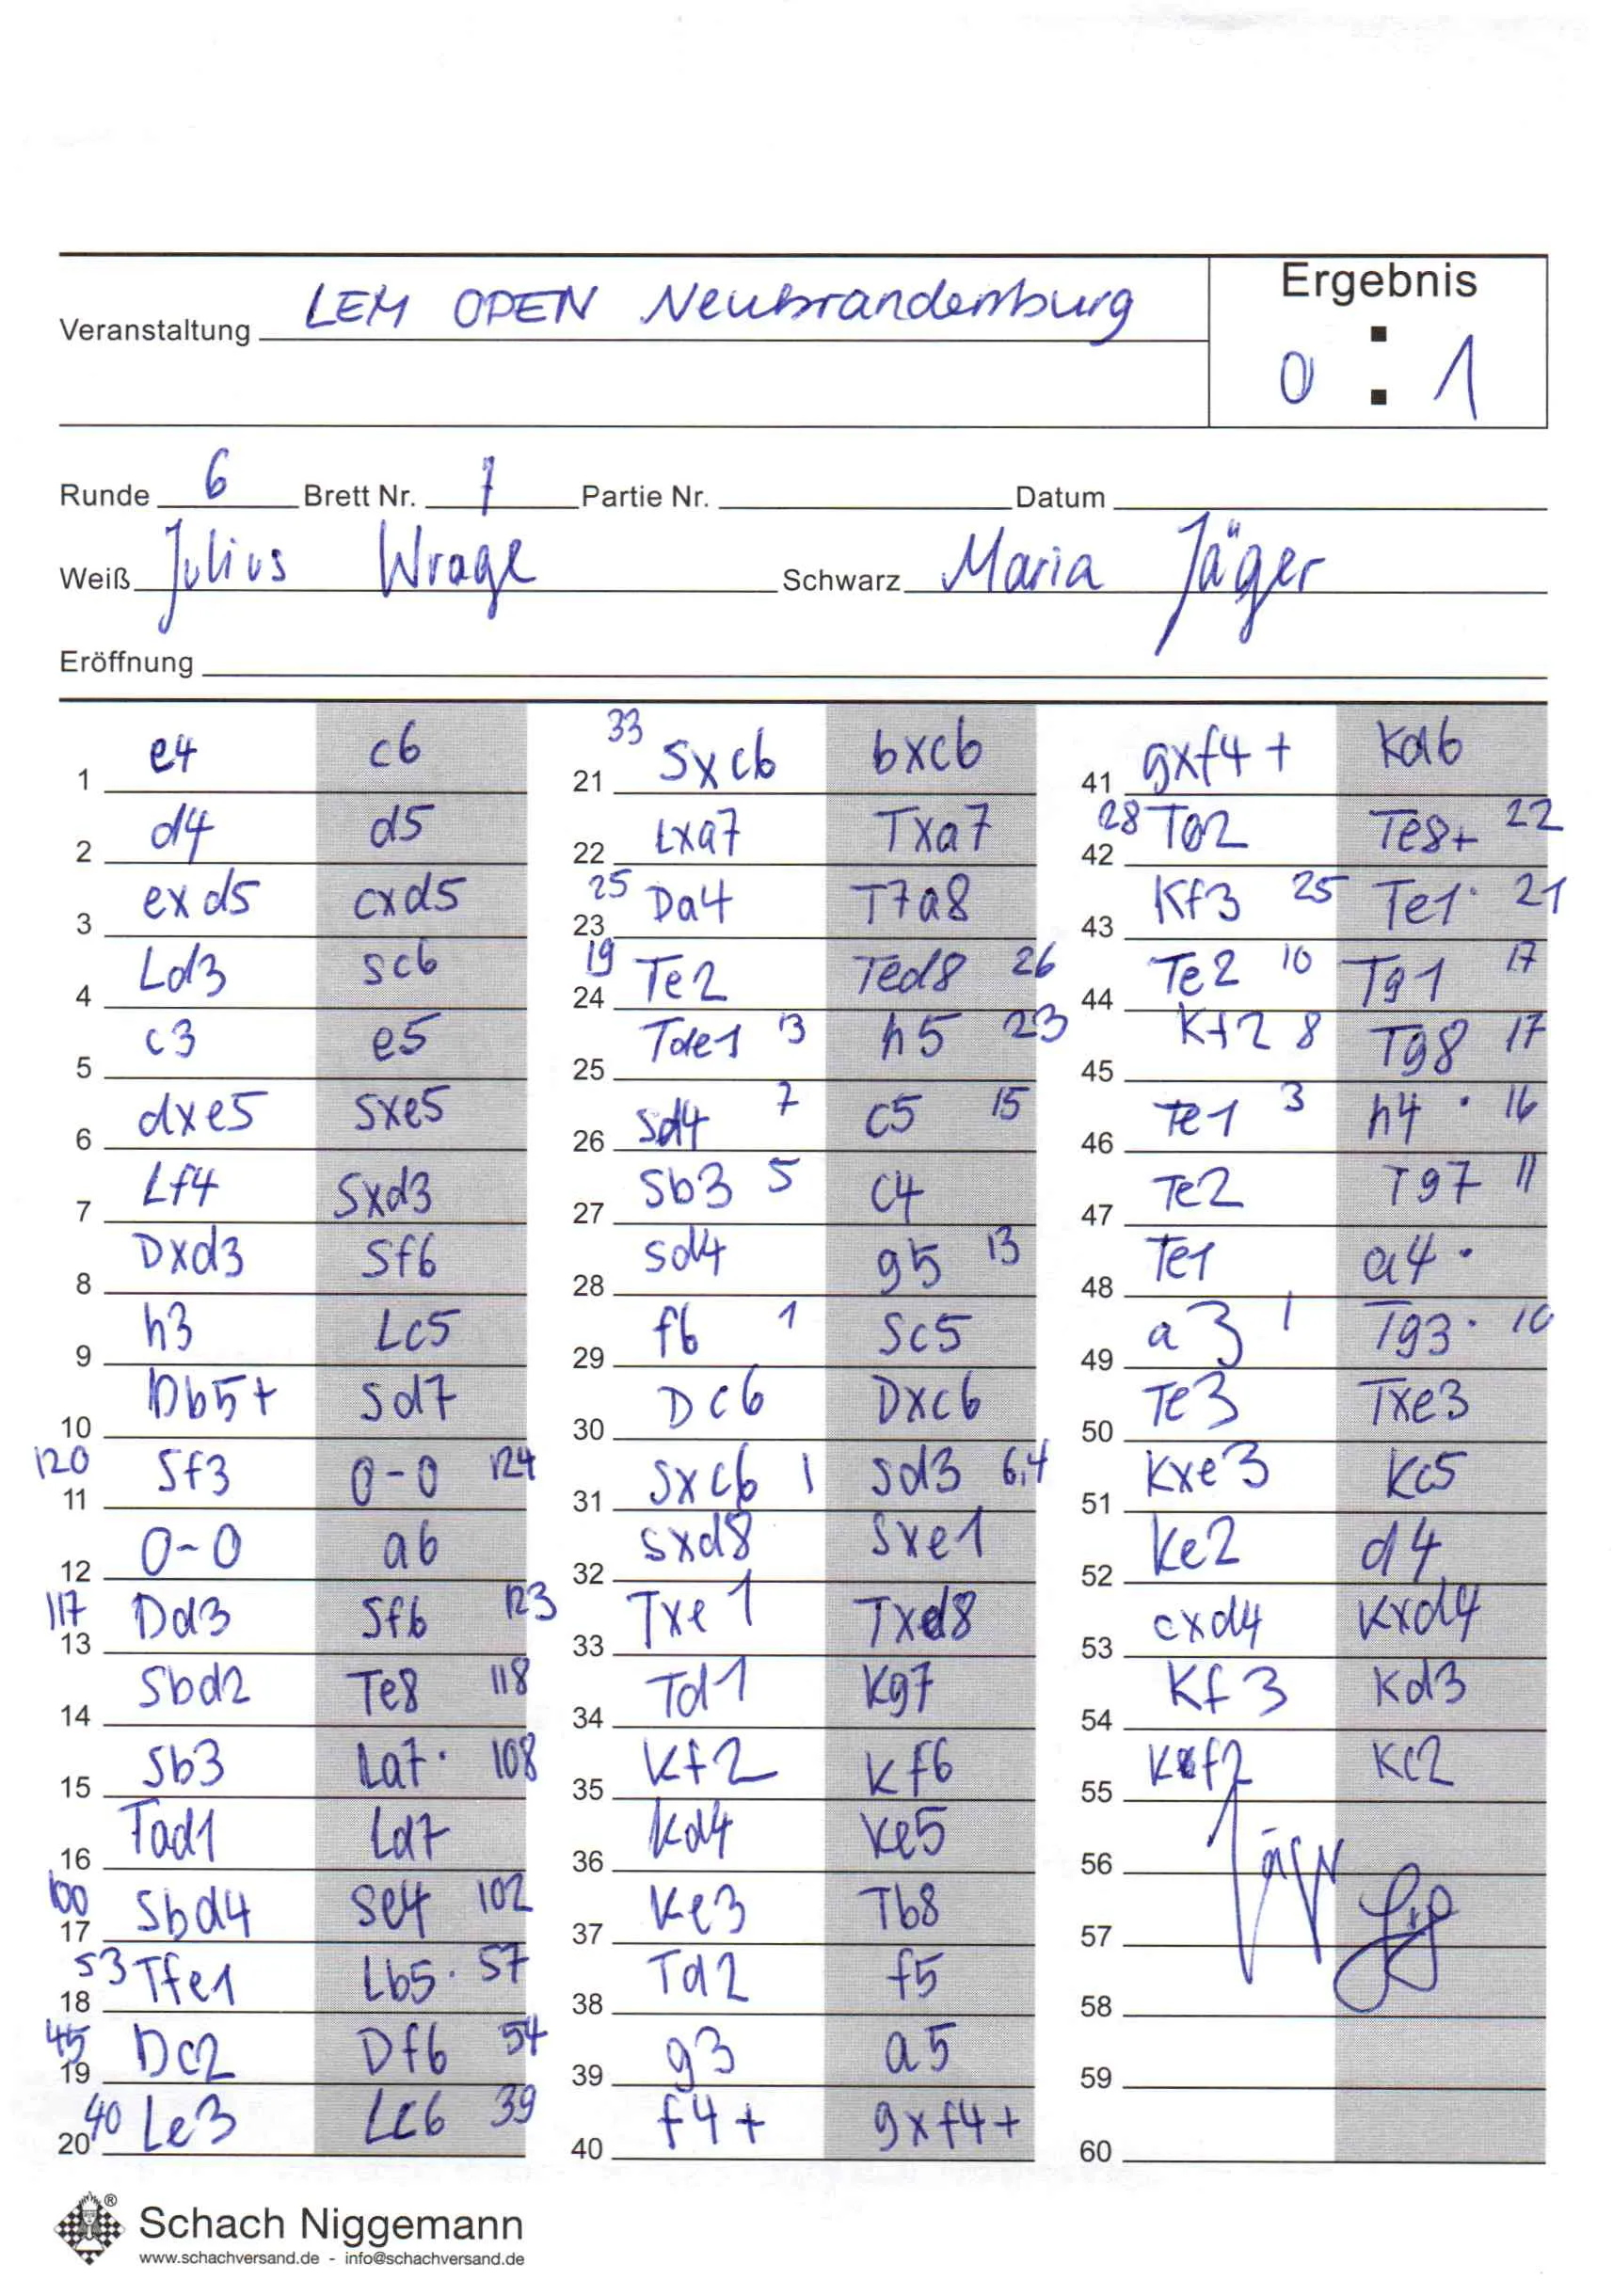 Veranstaltung LEM OPEN Neubrandenburg
Ergebnis
0 : 1
Runde 6 Brett Nr. 7 Partie Nr. Datum
Weiß Julius Wrage Schwarz Maria Jäger
Eröffnung
1 e4 c6
2 d4 d5
3 exd5 cxd5
4 Ld3 Sc6
5 c3 e5
6 dxe5 Sxe5
7 Lf4 Sxd3
8 Dxd3 Sf6
9 h3 Lc5
10 Db5+ Sd7
120 11 Sf3 0-0 124
12 0-0 a6
117 13 Dd3 Sf6 123
14 Sbd2 Te8 118
15 Sb3 La7· 108
16 Tad1 Ld7
100 17 Sbd4 Se4 102
53 18 Tfe1 Lb5· 57
45 19 Dc2 Df6 54
40 20 Le3 Lc6 39
33 21 Sxc6 bxc6
22 Lxa7 Txa7
25 23 Da4 T7a8
19 24 Te2 Ted8 26
25 Tde1 13 h5 23
26 Sd4 7 c5 15
27 Sb3 5 c4
28 Sd4 g5 13
29 f6 1 Sc5
30 Dc6 Dxc6
31 Sxc6 1 Sd3 6,4
32 Sxd8 Sxe1
33 Txe1 Txd8
34 Td1 Kg7
35 Kf2 Kf6
36 Kd4 Ke5
37 Ke3 Tb8
38 Td2 f5
39 g3 a5
40 f4+ gxf4+
41 gxf4+ Kd6
28 42 Tg2 Te8+ 22
43 Kf3 25 Te1· 21
44 Te2 10 Tg1 17
45 Kf2 8 Tg8 17
46 Te1 3 h4 · 16
47 Te2 Tg7 11
48 Te1 a4 ·
49 a3 1 Tg3· 10
50 Te3 Txe3
51 Kxe3 Kc5
52 Ke2 d4
53 cxd4 Kxd4
54 Kf3 Kd3
55 Kf2 Kc2
56 Jäger
57
58
59
60
®
Schach Niggemann
www.schachversand.de - info@schachversand.de